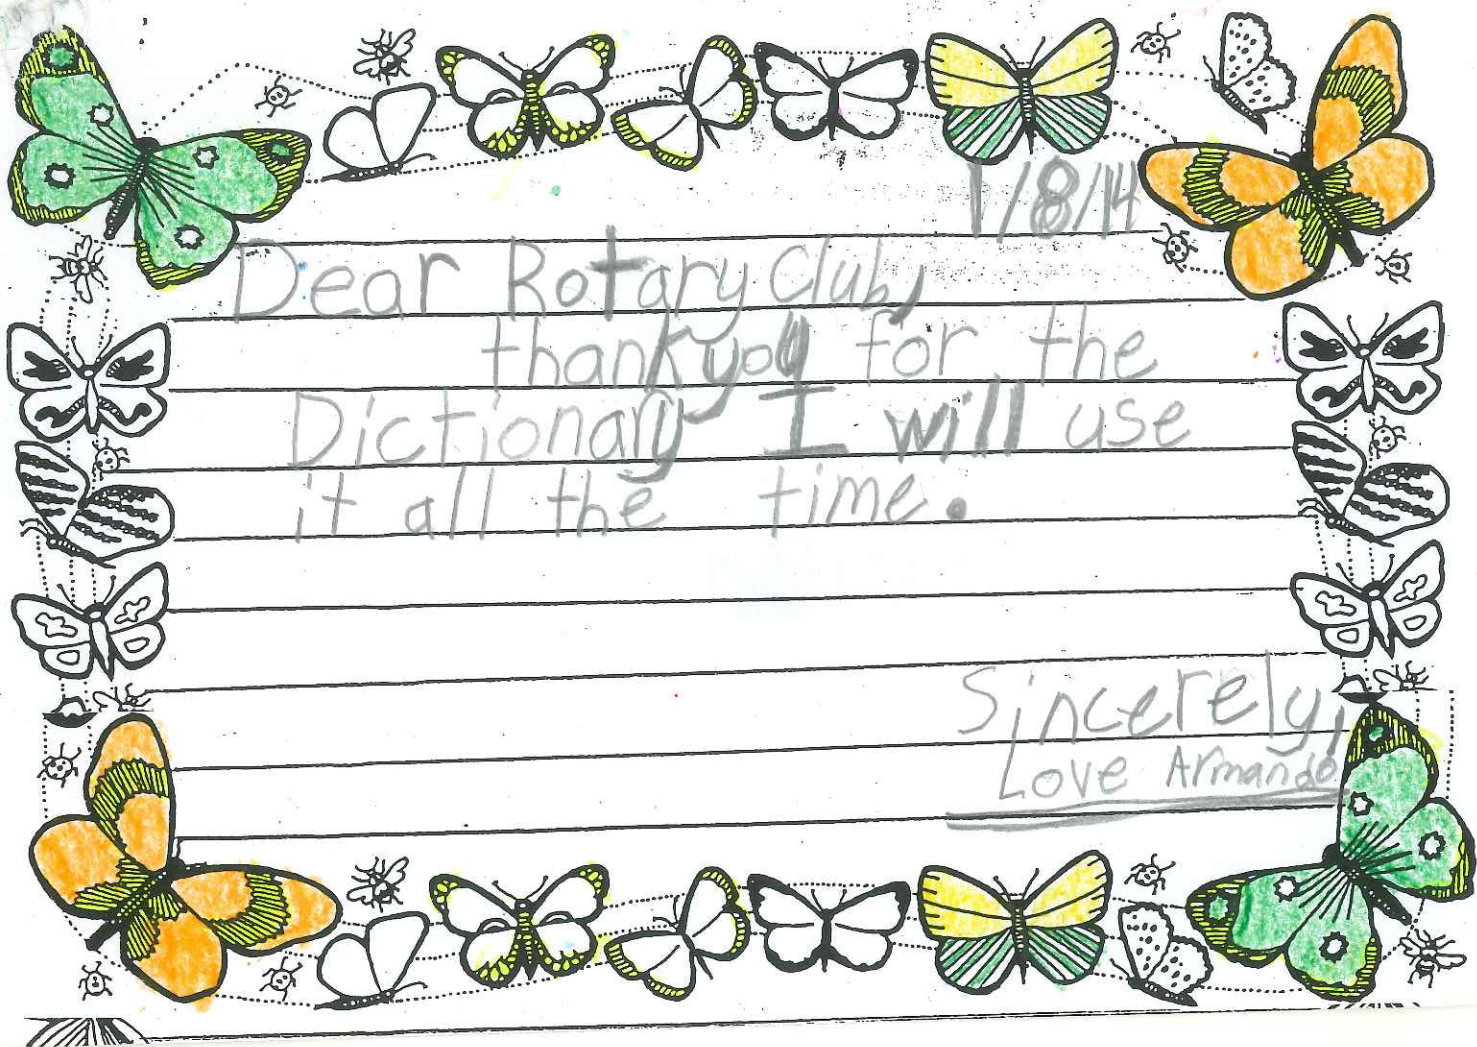 1/8/14
Dear Rotary Club,
thank you for the
Dictionary I will use
it all the time.
Sincerely,
Love Armando